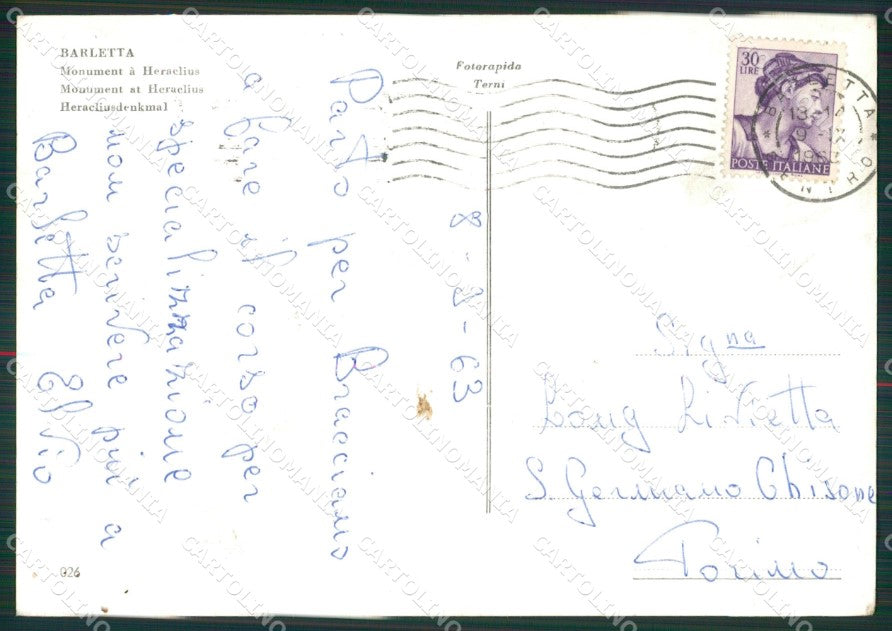 BARLETTA
Monument à Heraclius
Monument st Heraclius
Heracliusdenkmal
Fotorapida
Terni
30
LIRE
POSTE ITALIANE
8-9-63
Parto per Bracciano
a fare il corso per
specializzazione
non scrivere più a
Barletta Elvio
Sig.na
Long Livietta
S. Germano Chisone
Torino
026
CARTOLINOMANIA